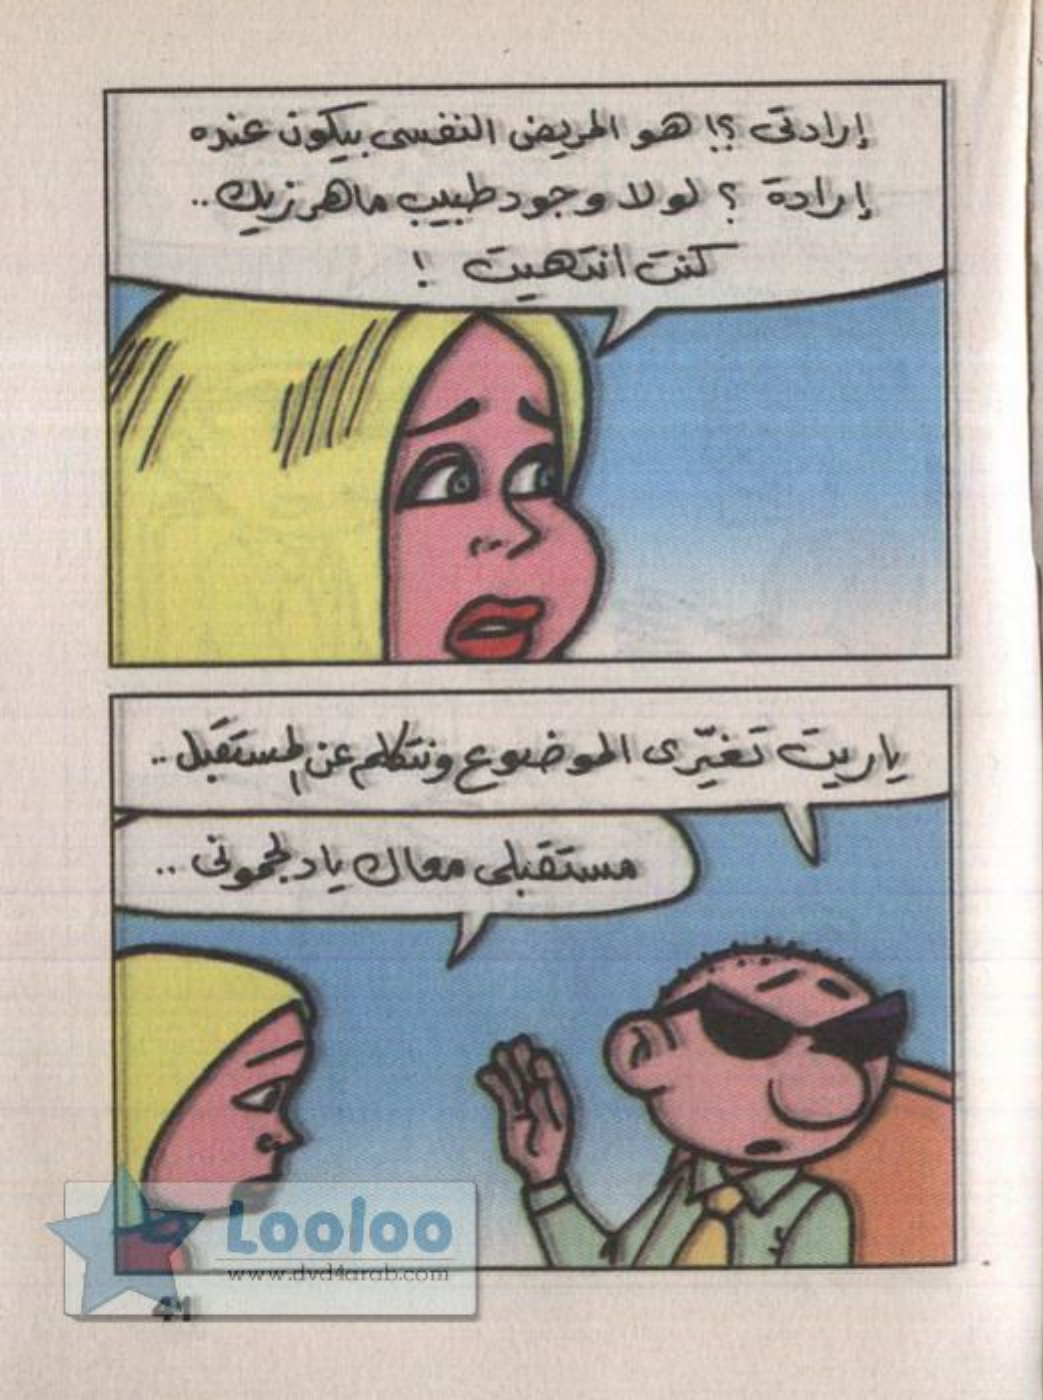 إرادتى ؟! هو المريض النفسى بيكون عنده
إرادة ؟ لولا وجود طبيب ماهر زيك ..
كنت انتهيت !
ياريت تغيّرى الموضوع ونتكلم عن المستقبل ..
مستقبلى معاك ياد لجمونى ..
Looloo
www.dvd4arab.com
41